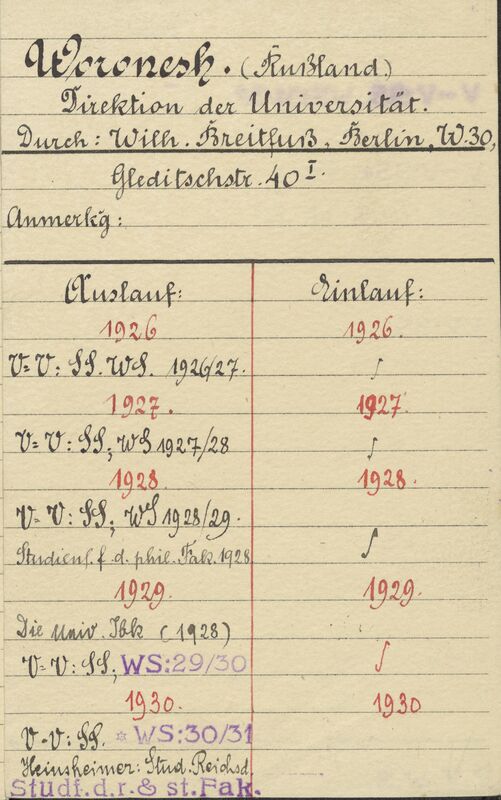 Woronesh. (Rußland)
Direktion der Universität.
Durch: Wilh. Breitfuß, Berlin, W.30,
Gleditschstr. 40 I.
Anmerkg:
Auslauf: Einlauf:
1926 1926.
V=V: SS. WS. 1926/27. ∫
1927. 1927.
V=V: SS, WS 1927/28 ∫
1928 1928.
V=V: SS, WS 1928/29.
Studienf. f. d. phil. Fak. 1928 ∫
1929. 1929.
Die Univ. Ibk (1928)
V=V: SS, WS:29/30 ∫
1930. 1930
V-V: SS. * WS:30/31
Heinsheimer: Stud. Reichsd.
Studf.d.r.& st.Fak.